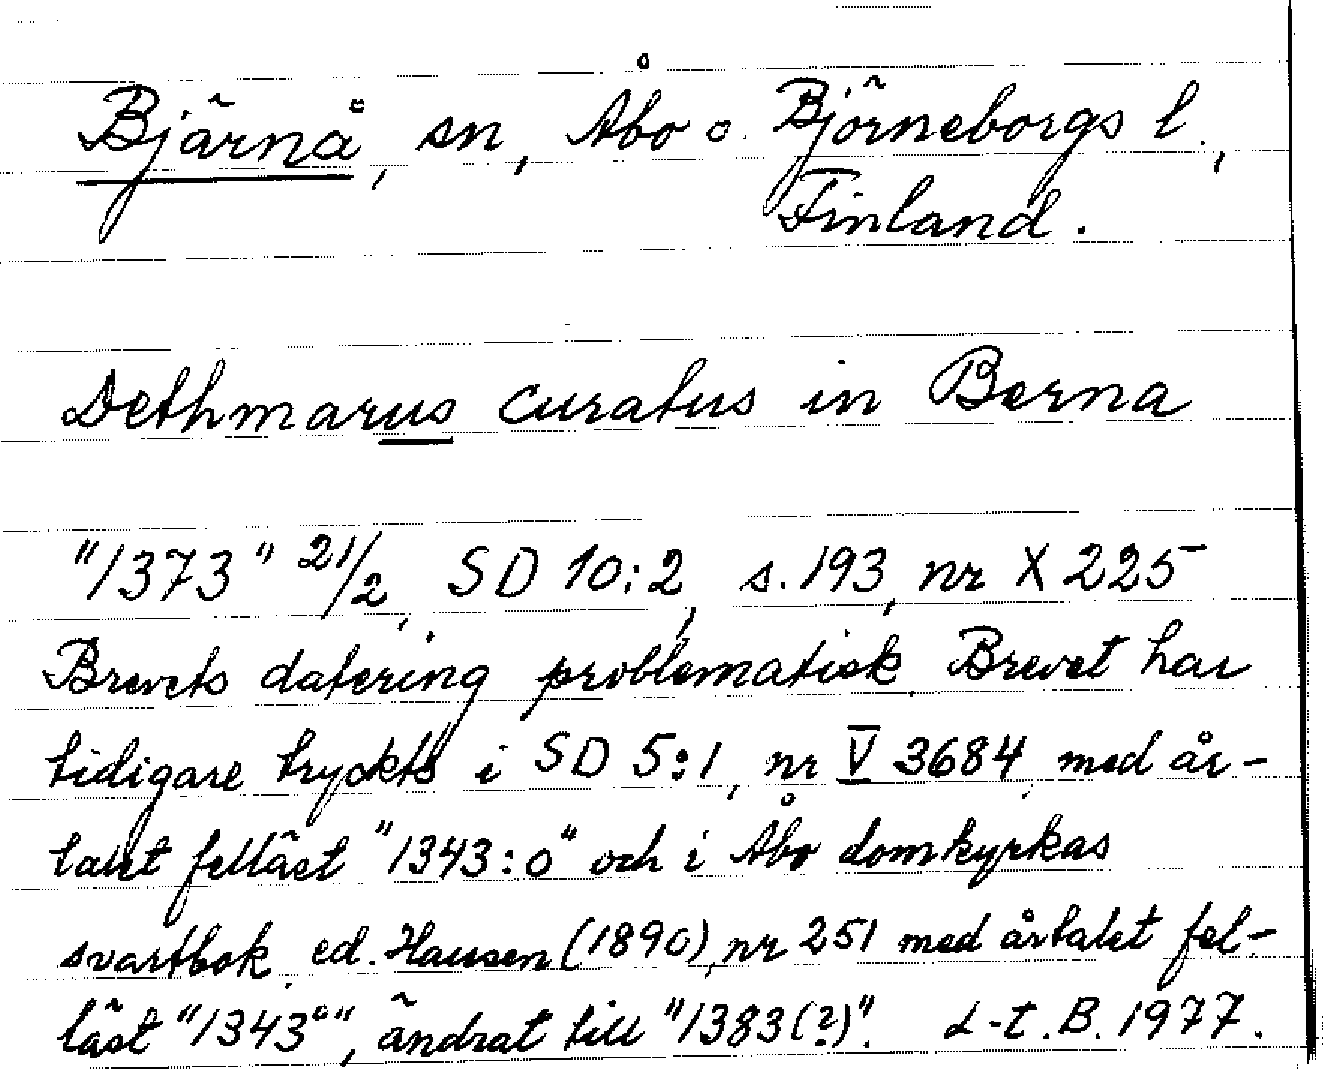 Bjärnå, sn, Åbo o. Björneborgs l.,
Finland.
Dethmarus curatus in Berna
"1373" 21/2, SD 10:2, s. 193, nr X 225
Brevets datering problematisk. Brevet har
tidigare tryckts i SD 5:1, nr V 3684, med år-
talet felläst "1343:o" och i Åbo domkyrkas
svartbok, ed. Hausen (1890), nr 251 med årtalet fel-
läst "1343°", ändrat till "1383(?)". L-t. B. 1977.